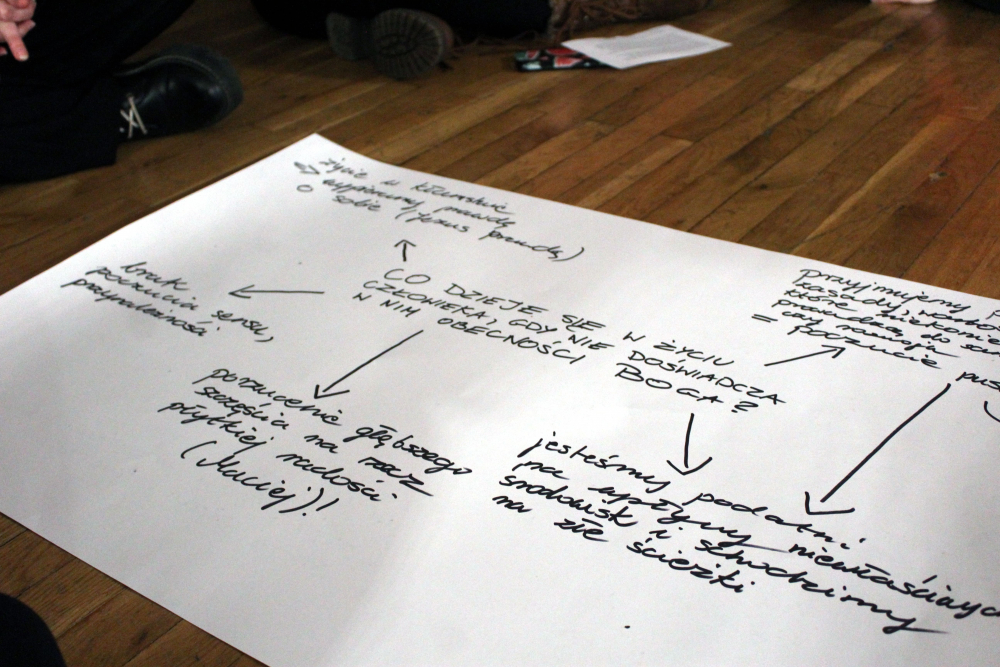 życie w kłamstwie
wypieramy prawdę
o sobie (Jezus Prawdą)
brak
poczucia sensu,
przynależności
CO DZIEJE SIĘ W ŻYCIU
CZŁOWIEKA, GDY NIE DOŚWIADCZA
W NIM OBECNOŚCI BOGA?
przyjmujemy
które
prowadzą do
czy
= poczucie pus
porzucenie głębszego
szczęścia na rzecz
płytkiej radości
(Maciej)!
jesteśmy podatni
na wpływy niewłaściwych
środowisk i schodzimy
na złe ścieżki